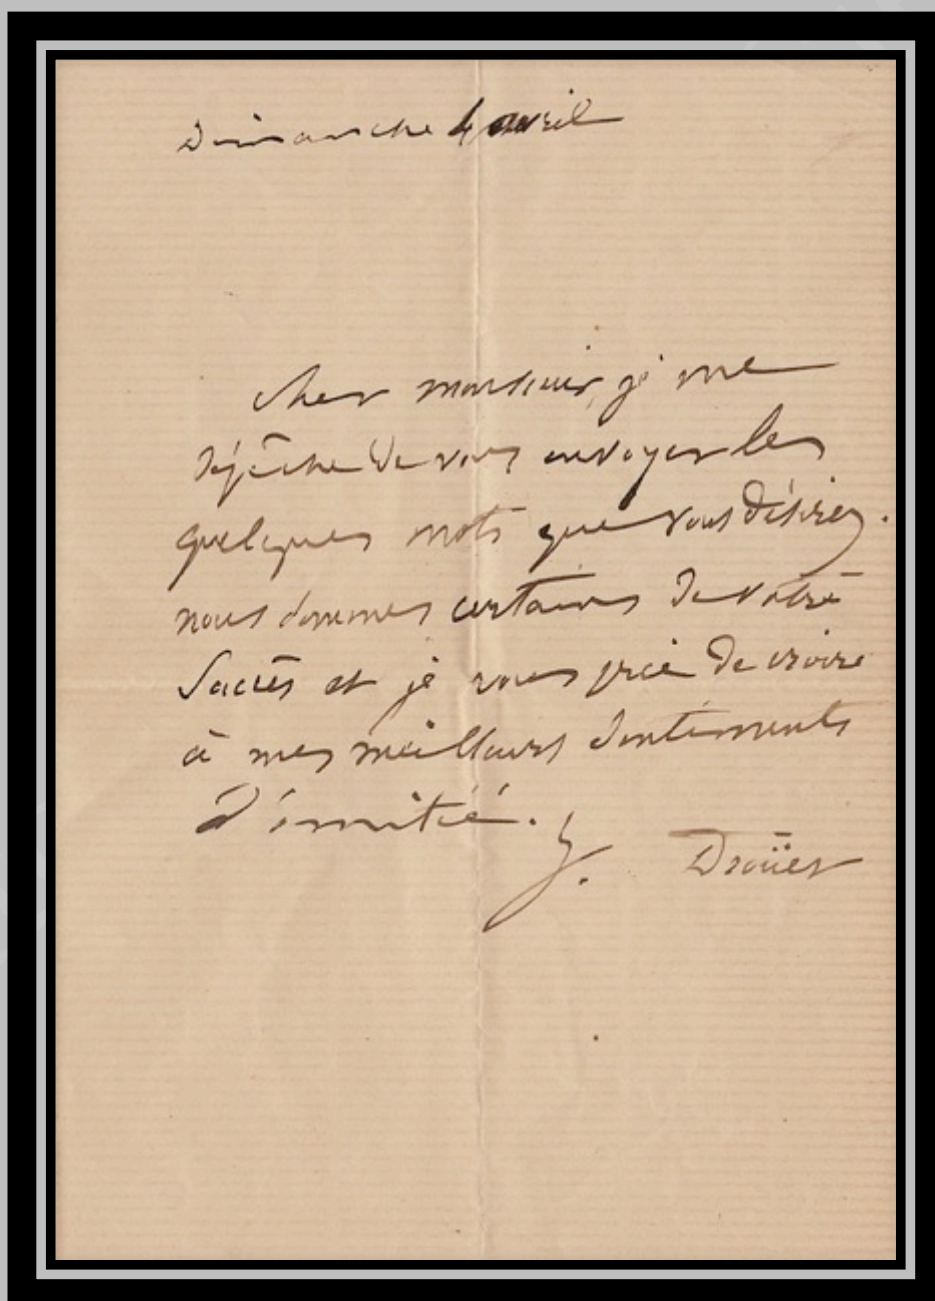 Dimanche 4 avril
cher monsieur, je me
dépêche de vous envoyer les
quelques mots que vous désirez.
nous sommes certains de votre
succès et je vous prie de croire
à mes meilleurs sentiments
d'amitié.
J. Droüet